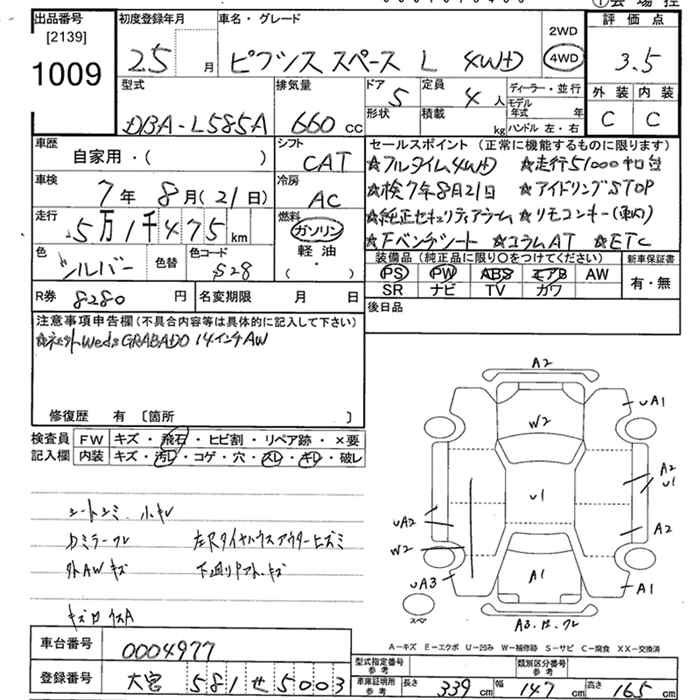 出品番号
[2139]
1009
初度登録年月
25 月
車名・グレード
ピクシス スペース L 4WD
2WD
4WD
評価点
3.5
外装 内装
C C
型式
DBA-L585A
排気量
660 cc
ドア
5
形状
定員
4 人
積載
kg
ディーラー・並行
モデル年式 年
ハンドル 左・右
車歴
自家用・( )
シフト
CAT
車検
7年 8月(21日)
冷房
AC
走行
5万1千475 km
燃料
ガソリン
軽油
色
シルバー
色替
色コード
S28
セールスポイント (正常に機能するものに限ります)
☆フルタイム4WD ☆走行51000キロ台
☆検7年8月21日 ☆アイドリングSTOP
☆純正セキュリティアラーム ☆リモコンキー
☆Fベンチシート ☆コラムAT ☆ETC
装備品(純正品に限り○をつけてください)
PS PW ABS エアB AW
SR ナビ TV カワ
新車保証書
有・無
R券 8280 円
名変期限 月 日
後日品
注意事項申告欄(不具合内容等は具体的に記入して下さい)
Weds GRABADO 14インチAW
修復歴 有〔箇所 〕
検査員記入欄
FW キズ・飛石・ヒビ割・リペア跡・×要
内装 キズ・汚レ・コゲ・穴・スレ・キレ・破レ
シートシミ・小キレ
左Rタイヤハウスアウターヒズミ
外AWキズ
A2
UA1
W2
A2
U1
U1
UA2
W2
A2
UA3
A1
A1
スペア
A キズ E エクボ U 凹み W 補修跡 S サビ C 腐食 XX 交換済
車台番号
0004977
登録番号
大宮 581 せ 5003
型式指定番号
参考
類別区分番号
参考
車庫証明用
参考
長さ 339 cm 幅 147 cm 高さ 165 cm